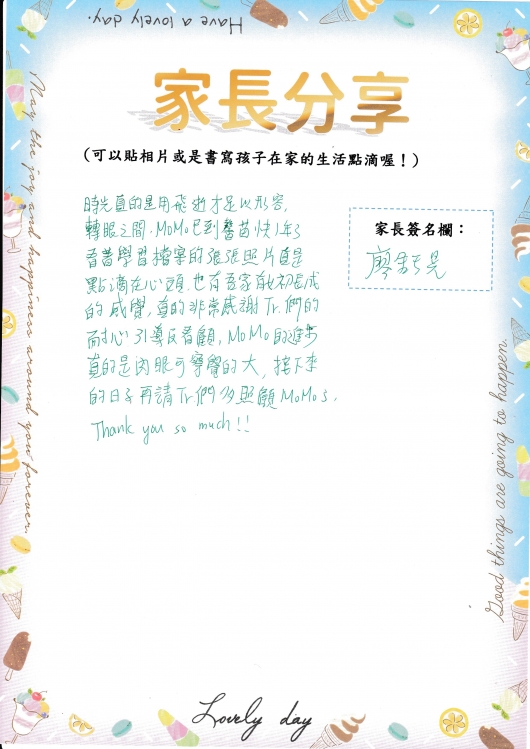 Have a lovely day.
家長分享
(可以貼相片或是書寫孩子在家的生活點滴喔！)
時光真的是用飛逝才足以形容,
轉眼之間,MoMo已到馨苗快1年了
看著學習檔案的張張照片真是
點滴在心頭.也有吾家有女初長成
的感覺,真的非常感謝Tr.們的
耐心引導及看顧,MoMo的進步
真的是肉眼可見的大,接下來
的日子再請Tr們多照顧MoMo了.
Thank you so much!!
家長簽名欄：
May the joy and happiness around you forever.
Good things are going to happen.
Lovely day